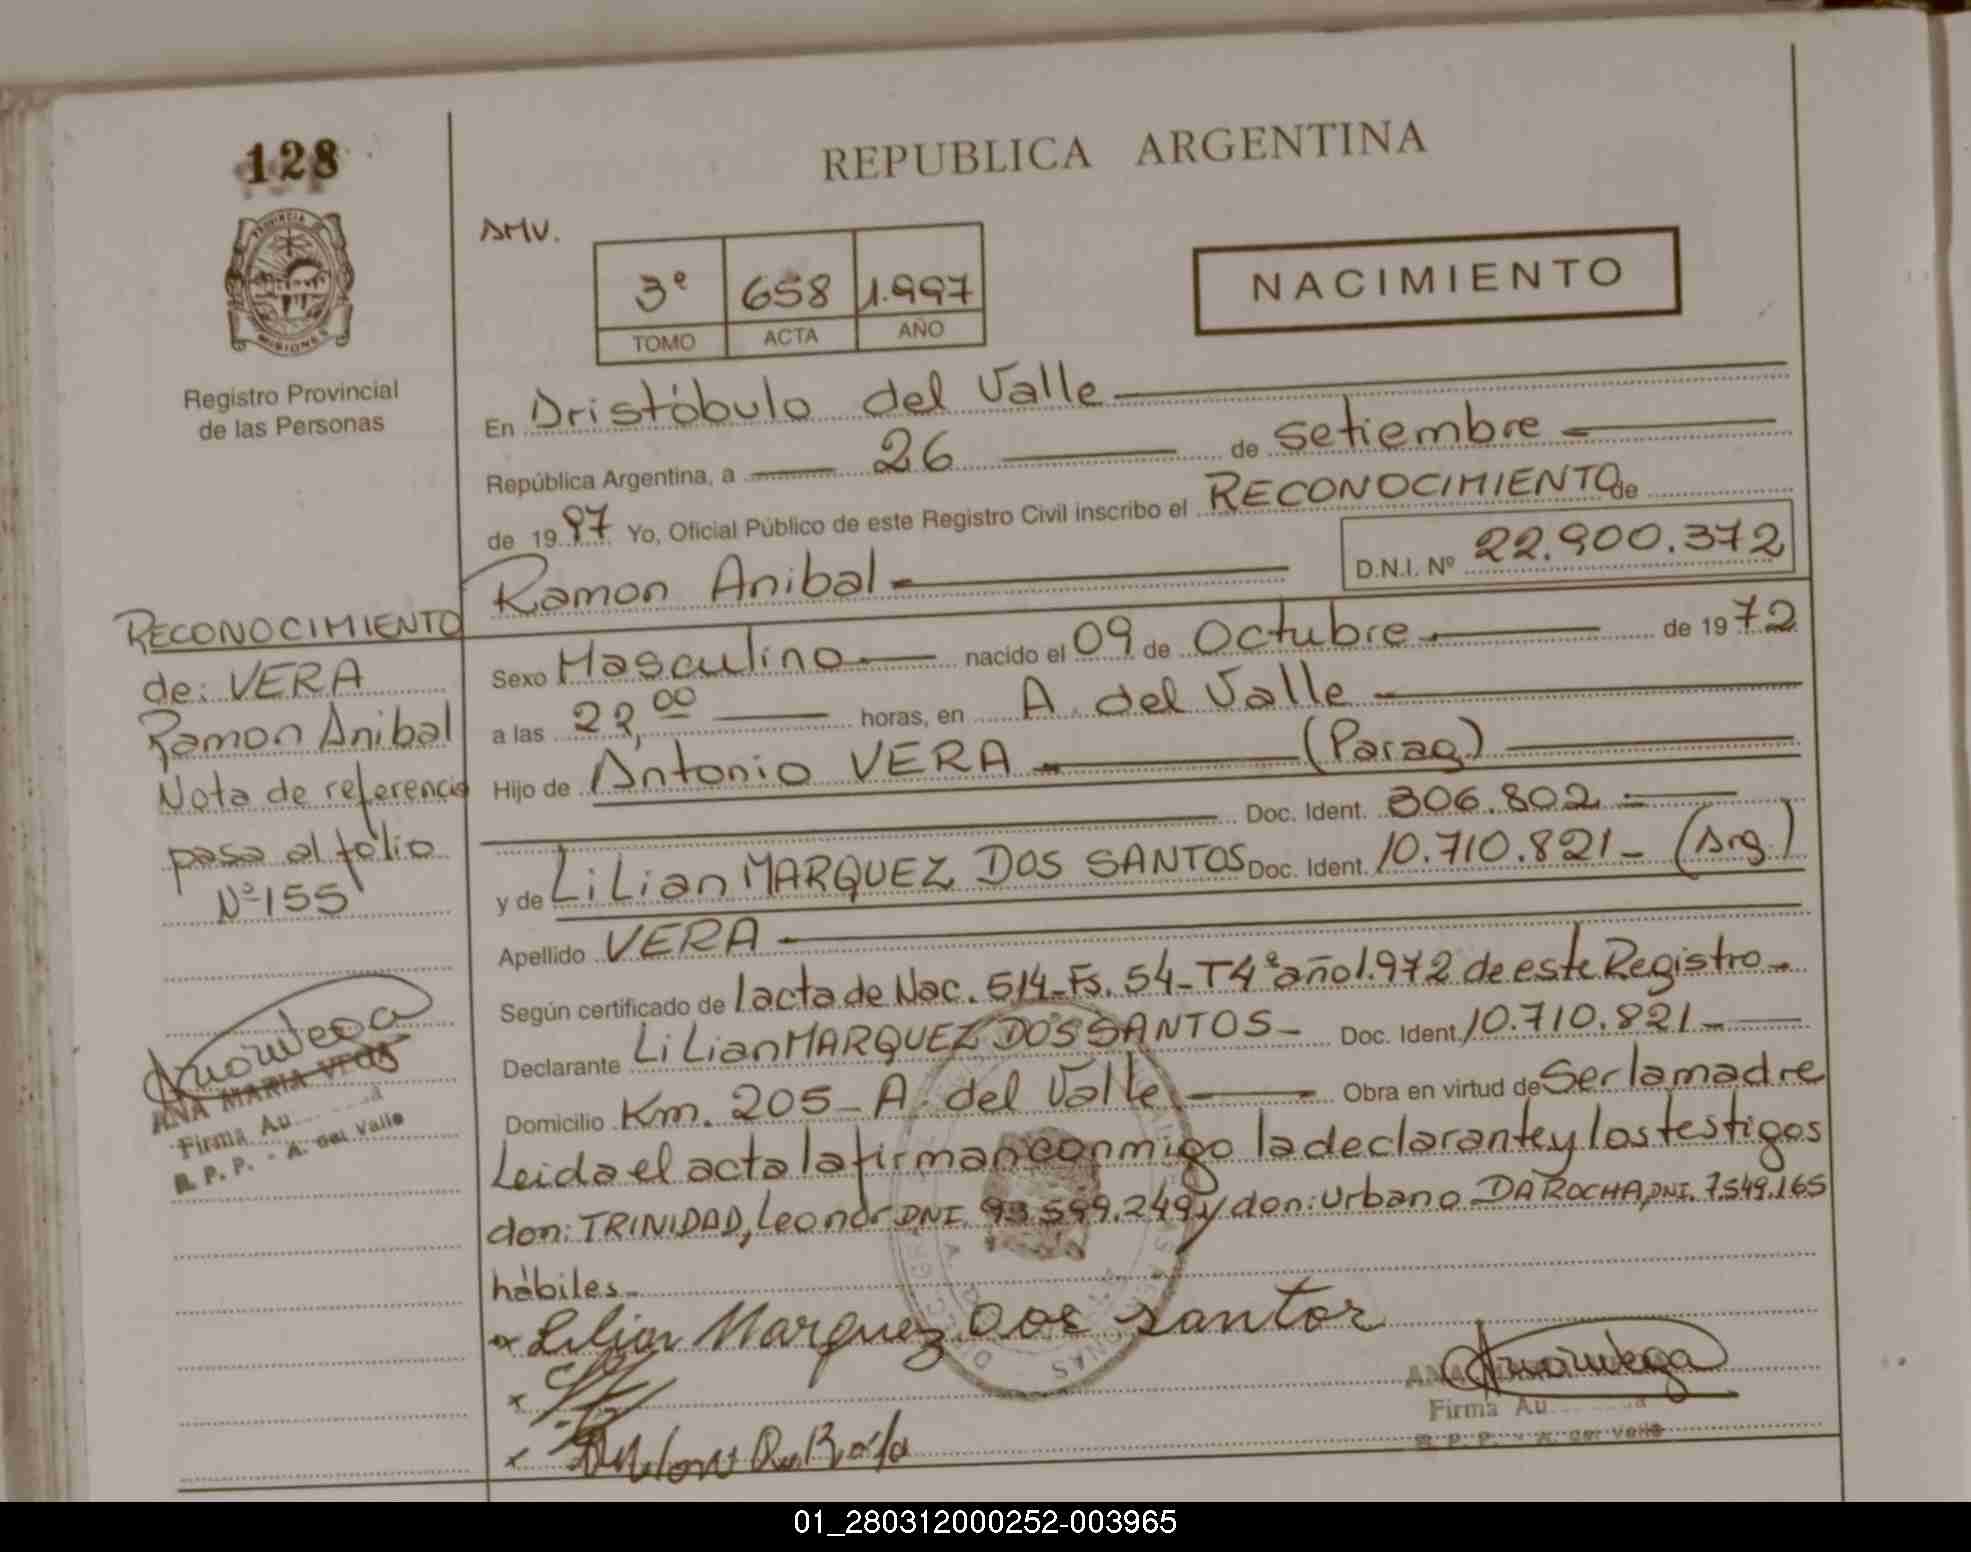 128
PROVINCIA DE
MISIONES
Registro Provincial
de las Personas
REPUBLICA ARGENTINA
AMV.
3º 658 1.997
TOMO ACTA AÑO
NACIMIENTO
En Aristóbulo del Valle
República Argentina, a 26 de setiembre
de 1997 Yo, Oficial Público de este Registro Civil inscribo el RECONOCIMIENTO de
Ramon Anibal D.N.I. Nº 22.900.372
Sexo Masculino nacido el 09 de Octubre de 1972
a las 22,00 horas, en A. del Valle
Hijo de Antonio VERA (Parag.)
Doc. Ident. 306.802
y de LiLian MARQUEZ DOS SANTOS Doc. Ident. 10.710.821- (Arg.)
Apellido VERA
Según certificado de 1 acta de Nac. 514-Fs. 54-T4º año 1.972 de este Registro-
Declarante LiLian MARQUEZ DOS SANTOS- Doc. Ident. 10.710.821-
Domicilio Km. 205- A. del Valle Obra en virtud de Ser la madre
Leida el acta la firman conmigo la declarante y los testigos
don: TRINIDAD, Leonor DNI. 93.599.249 y don: Urbano DA ROCHA, DNI. 7.549.165
hábiles.-
x Lilian Marquez Dos santos
x
x
ANA
Firma Au a
R. P. P. - A. del Valle
RECONOCIMIENTO
de: VERA
Ramon Anibal
Nota de referencia
pasa al fólio
Nº 155
ANA MARIA VEGA
Firma Au a
R. P. P. - A. del Valle
01_280312000252-003965